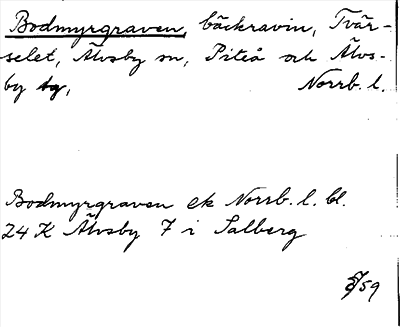 Bodmyrgraven, bäckravin, Tvär-
selet, Älvsby sn, Piteå och Älvs-
by tg, Norrb. l.
Bodmyrgraven ek Norrb. l. bl.
24 K Älvsby 7 i Salberg
/59